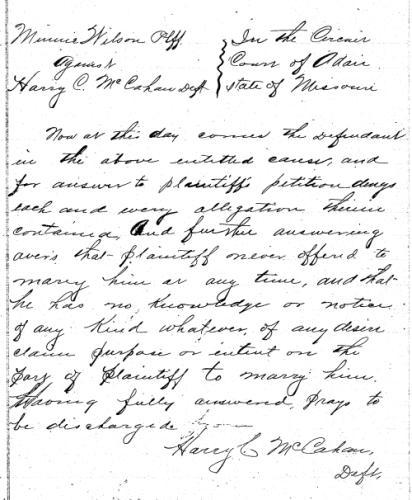 Minnie Wilson Plff } In the Circuir
Against } Court of Adair
Harry C. McCahan Deft } State of Missouri
Now at this day comes the Defendant
in the above entitled cause, and
for answer to plaintiffs petition denys
each and every allegation therein
contained, And further answering
avers that plaintiff never offered to
marry him at any time, and that
he has no knowledge or notice
of any Kind whatever, of any desire
claim purpose or intent on the
part of Plaintiff to marry him.
Having fully answered, prays to
be discharged
Harry C McCahan,
Deft.